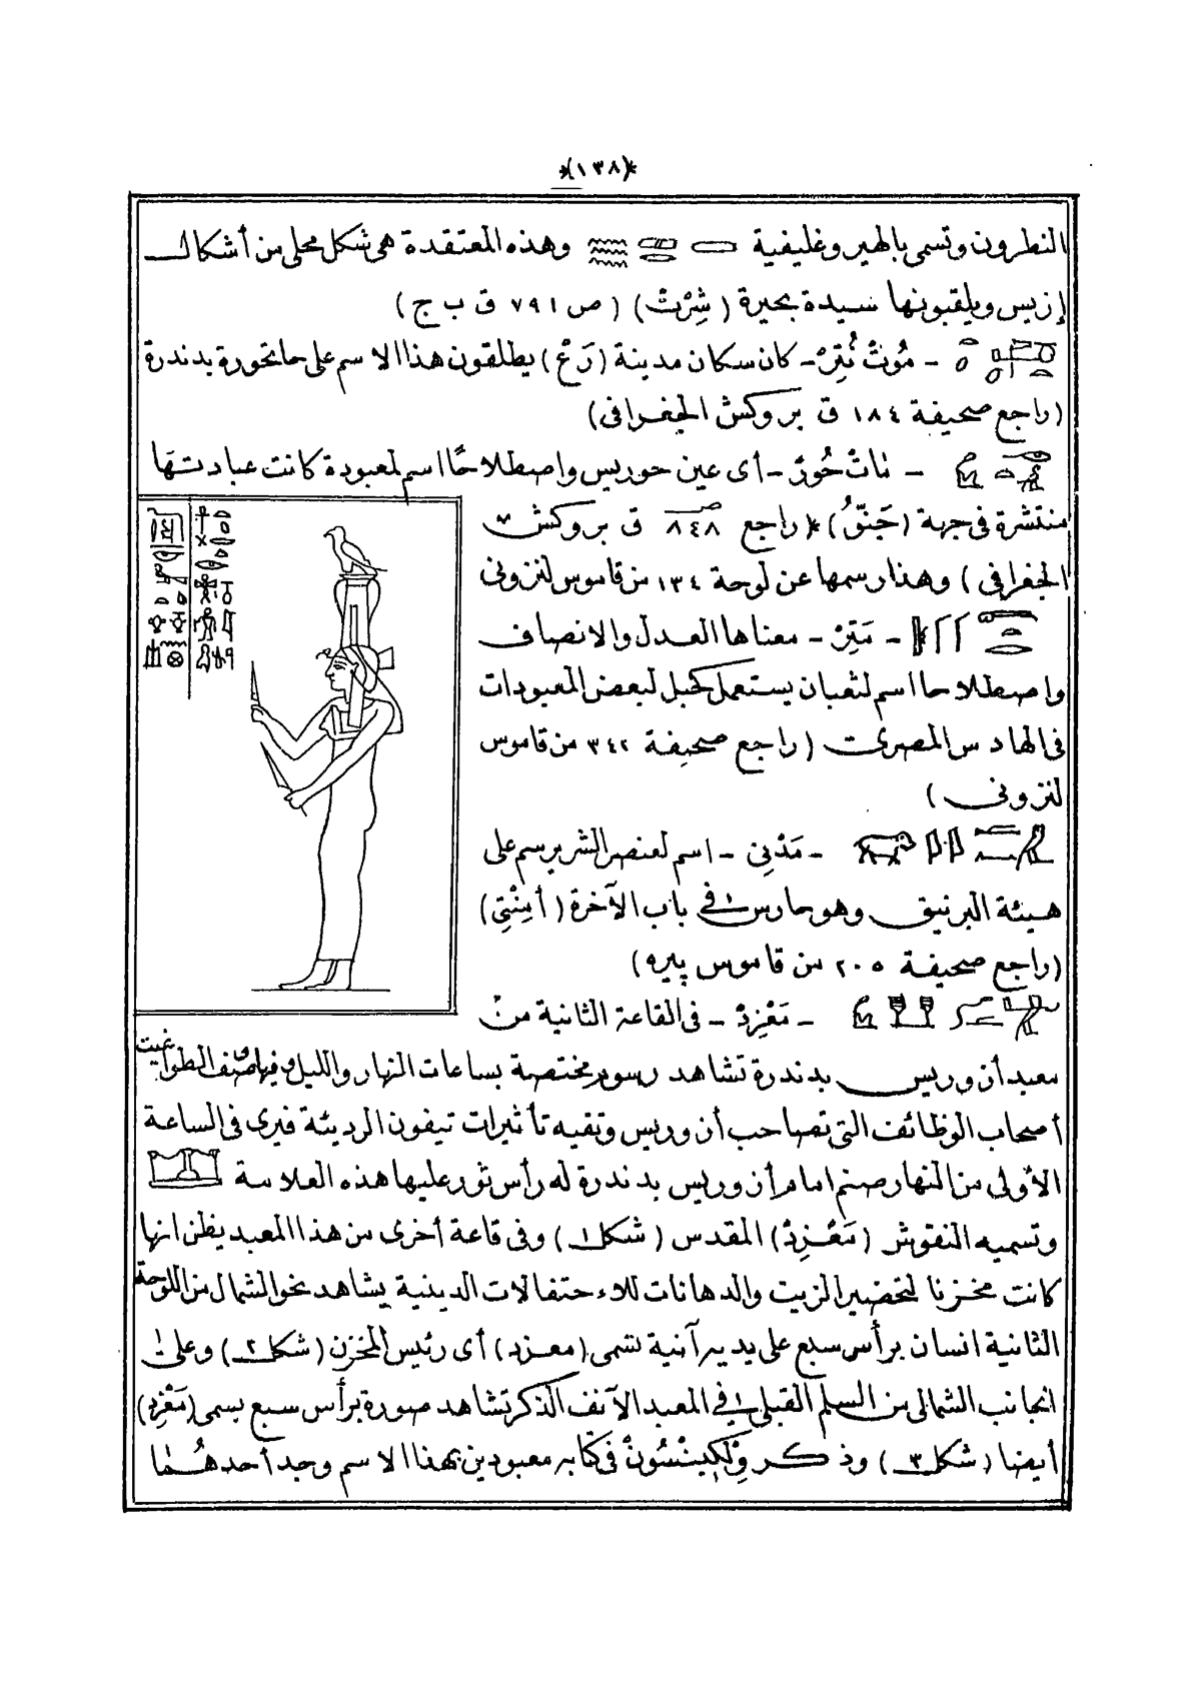 *(١٣٨)*
النطرون وتسمى بالهيروغليفية وهذه المعتقدة هى شكل محلى من أشكال
إزيس ويلقبونها سيدة بحيرة (شِرْتْ) (ص ٧٩١ ق ب ج)
- مُوتْ نُتِرْ - كان سكان مدينة (رَعْ) يطلقون هذا الاسم على حاتحورة بدندرة
(راجع صحيفة ١٨٤ ق بروكش الجغرافى)
- نات حُورْ - أى عين حوريس واصطلاحًا اسم لمعبودة كانت عبادتها
منتشرة فى جهة (حَنقُ) (راجع صـ ٨٤٨ ق بروكش
الجغرافى) وهذا رسمها عن لوحة ١٣٤ من قاموس لنزونى
- مَتِرْ - معناها العدل والانصاف
واصطلاحا اسم لثعبان يستعمل كحبل لبعض المعبودات
فى الهادس المصرى (راجع صحيفة ٣٤٢ من قاموس
لنزونى)
- مَدْنِى - اسم لعنصر الشر يرسم على
هيئة البرنيق وهو حارس فى باب الآخرة (أمِنْتِى)
(راجع صحيفة ٢٠٥ من قاموس پيره)
- مَعْزِدْ - فى القاعة الثانية من
معبد أن وريس بدندرة تشاهد رسوم مختصة بساعات النهار والليل وفيها صف الطواغيت
أصحاب الوظائف التى تصاحب أن وريس وتقيه تأثيرات تيفون الرديئة فيرى فى الساعة
الأولى من النهار صنم امام أن وريس بدندرة له رأس ثور عليها هذه العلامة
وتسميه النقوش (مَعْزِدْ) المقدس (شكل ١) وفى قاعة أخرى من هذا المعبد يظن انها
كانت مخزنا لتحضير الزيت والدهانات للاحتفالات الدينية يشاهد نحو الشمال من اللوحة
الثانية انسان برأس سبع على يديه آنية تسمى (معزد) أى رئيس المخزن (شكل ٢) وعلى
الجانب الشمالى من السلم القبلى فى المعبد الآنف الذكر تشاهد صورة برأس سبع يسمى (مَعْزِدْ)
أيضا (شكل ٣) وذكر وِلْكِينْسُونْ فى كتابه معبودين بهذا الاسم وجد أحدهُما